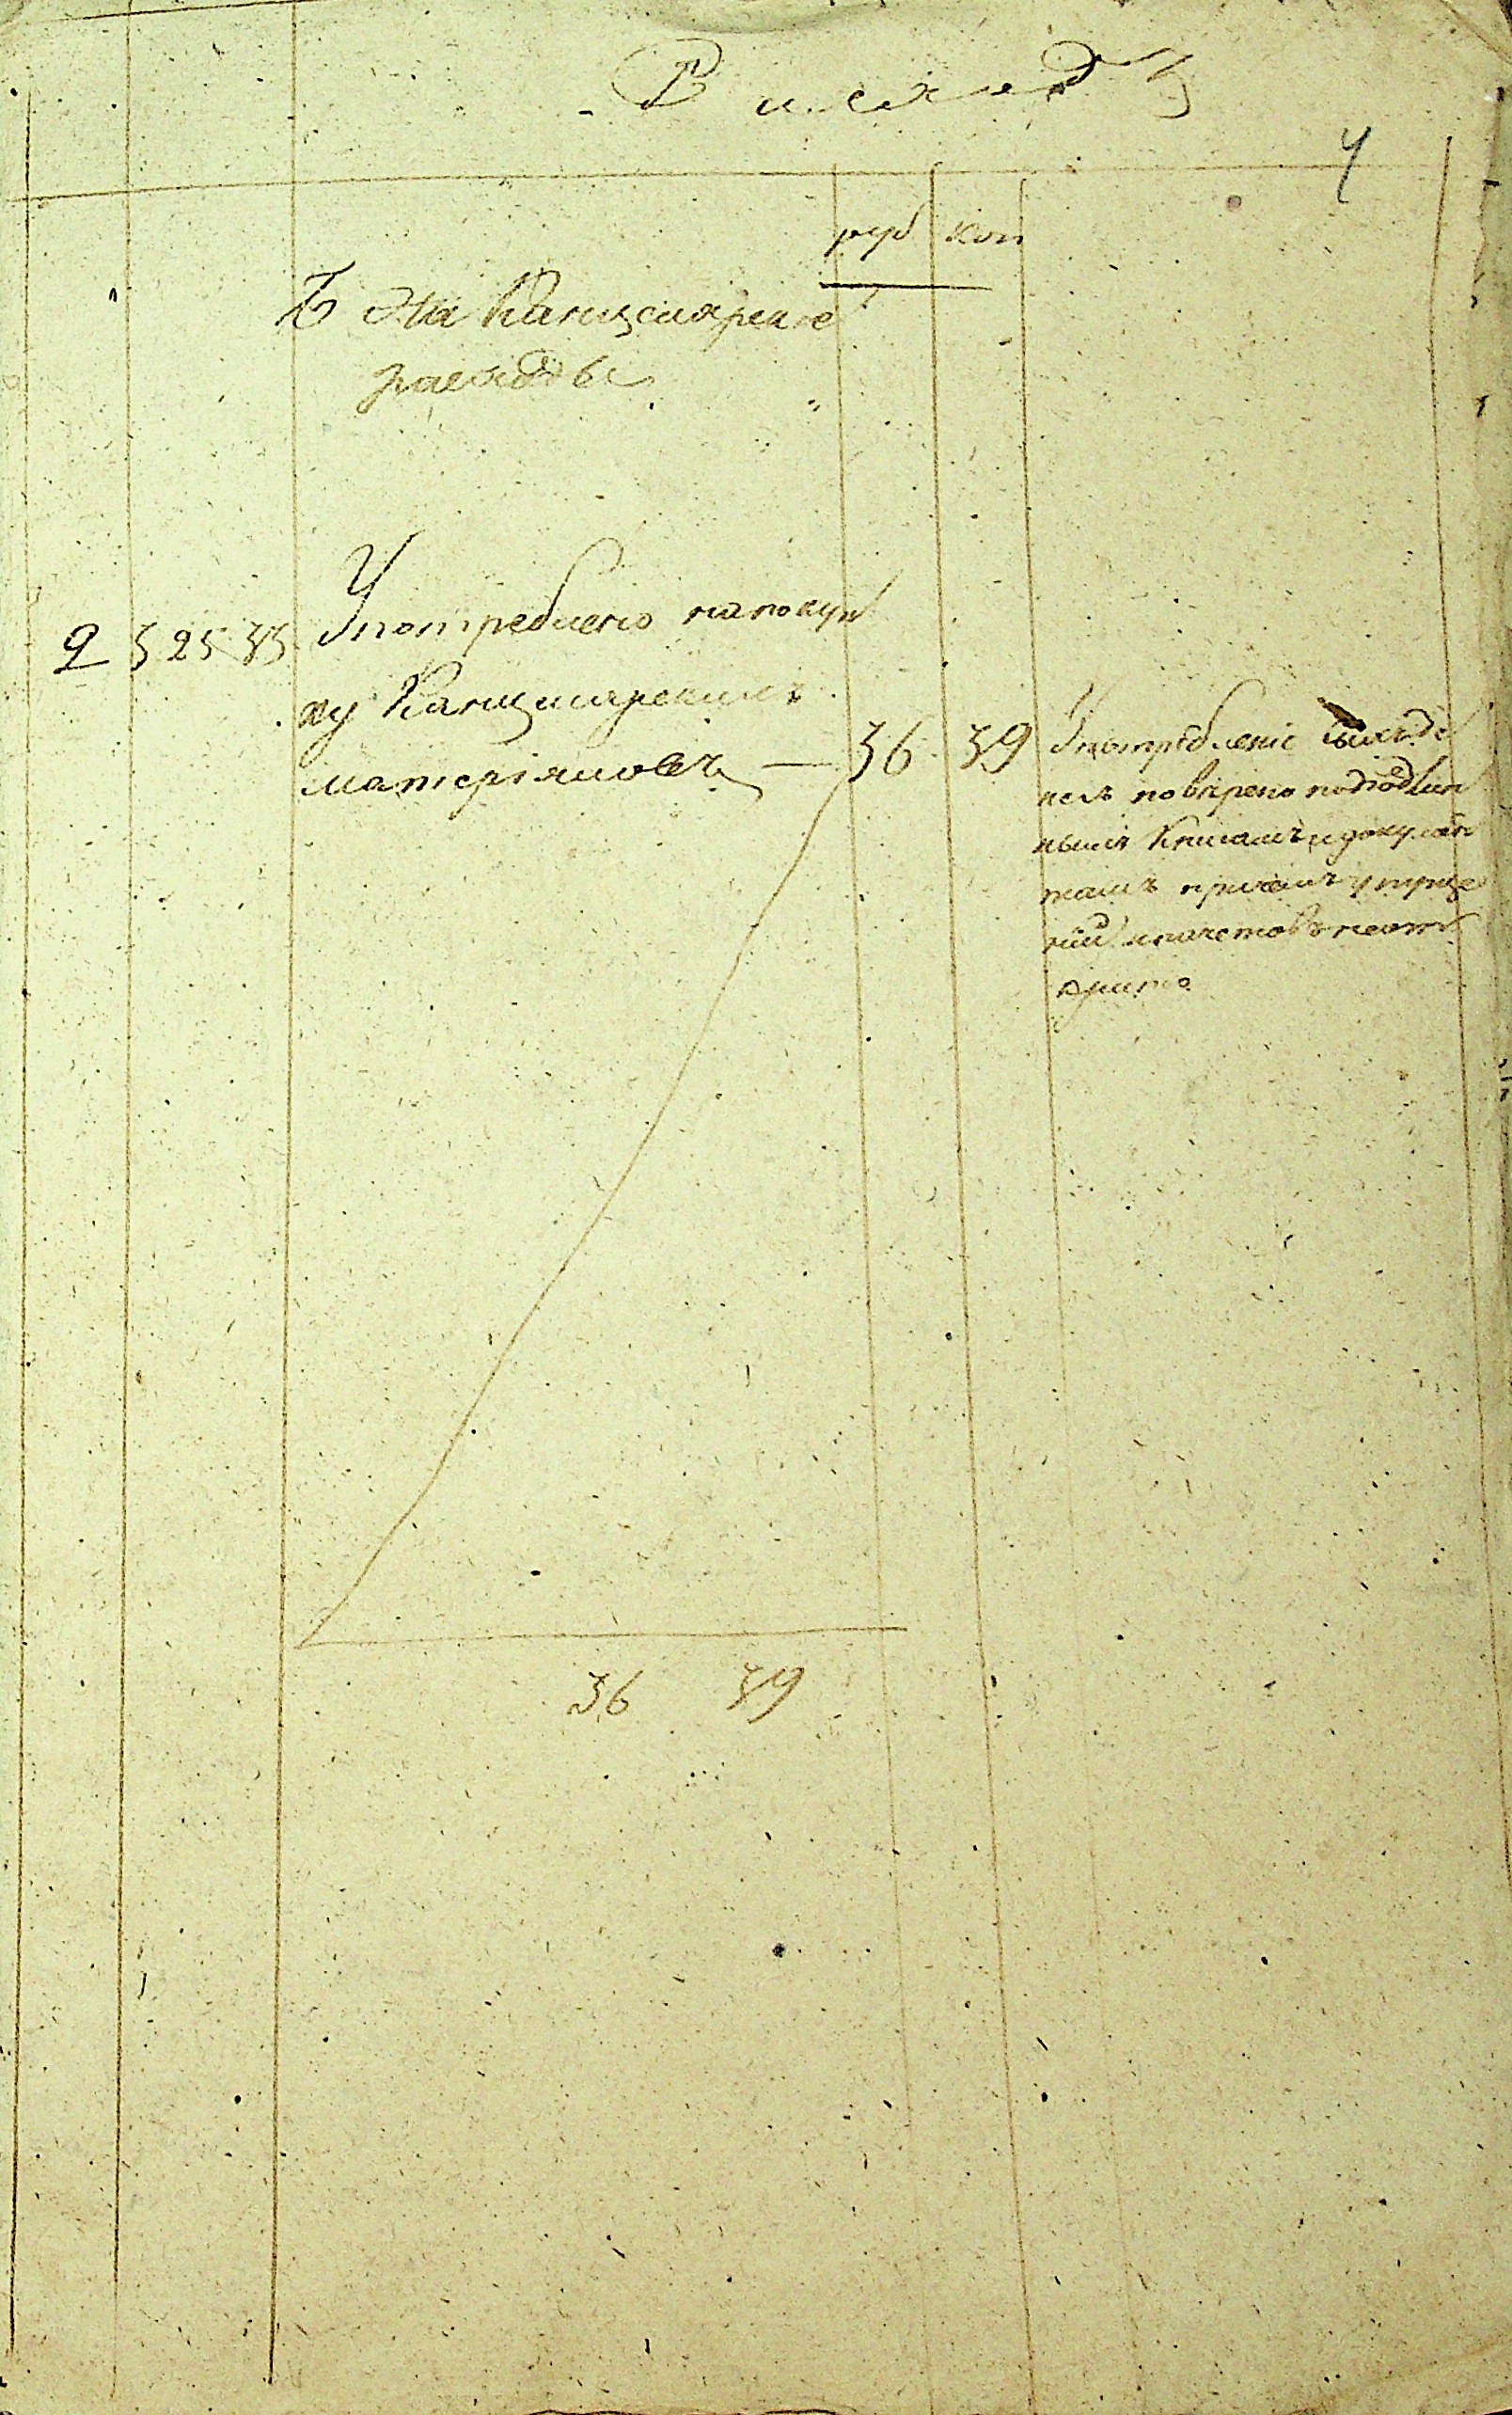 Расходъ
4
руб коп
Б На Канцелярские
расходы
2 3 25 33 Употреблено на покуп
ку Канцелярскихъ
материяловъ — 36 39
Употребление сихъ де
негъ поверено подлин
нымъ Книгамъ и докумен
тамъ причемъ упуще
ний и начетовъ неот
крыто
36 39